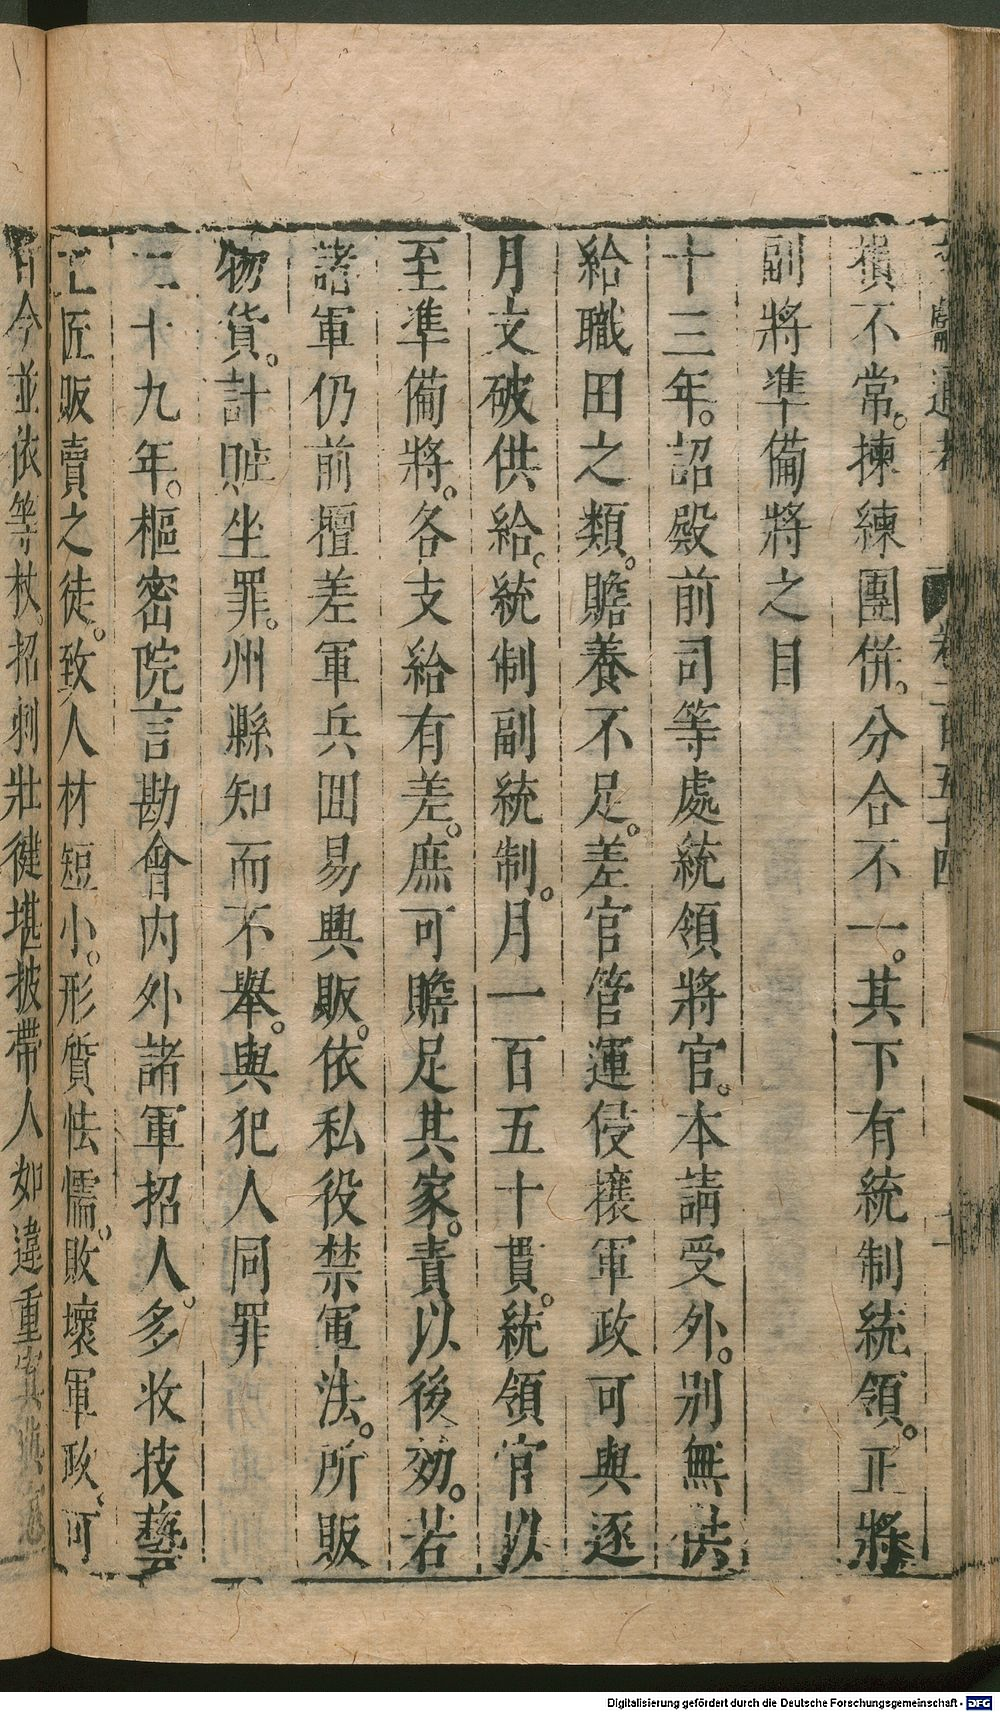 文獻通考 卷一百五十四
積不常。揀練團併。分合不一。其下有統制統領。正將
副將準備將之目
十三年。詔殿前司等處統領將官。本請受外。别無供
給職田之類。贍養不足。差官管運侵攘軍政可與逐
月支破供給。統制副統制。月一百五十貫。統領官以
至準備將。各支給有差。庶可贍足其家。責以後効。若
諸軍仍前擅差軍兵回易興販。依私役禁軍法。所販
物貨。計贓坐罪。州縣知而不舉。與犯人同罪
二十九年。樞密院言勘會内外諸軍招人。多收技藝
工匠販賣之徒。致人材短小。形質怯懦。敗壞軍政。可
自今並依等杖。招刺壯健堪披帶人如違重寘典憲
Digitalisierung gefördert durch die Deutsche Forschungsgemeinschaft - DFG